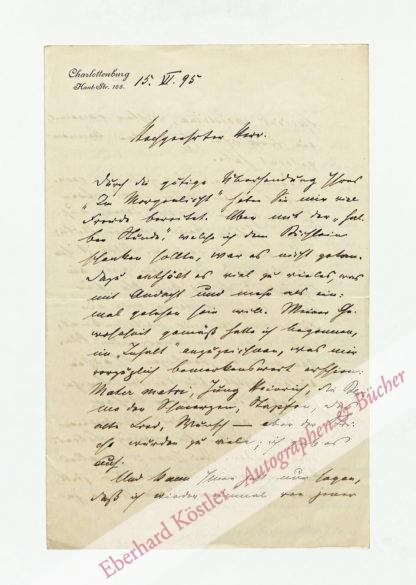 Charlottenburg
Kant-Str. 165.
15. VI. 95
Hochgeehrter Herr.
Durch die gütige Übersendung Ihres
„Im Morgenlicht" haben Sie mir viel
Freude bereitet. Aber mit der „hal-
ben Stunde", welche ich dem Büchlein
schenken sollte, war es nicht gethan.
Dazu enthält es viel zu vieles, was
mit Andacht und mehr als ein-
mal gelesen sein will. Meiner Ge-
wohnheit gemäß hatte ich begonnen,
im „Inhalt" anzuzeichnen, was mir
vorzüglich bemerkenswert erschien:
Mater matri, Jung Heinrich, die
der Schmerzen, das
alte Lied, Wunsch — aber der
würden zu viele; ich es
auf.
Und kann Ihnen nur sagen,
daß ich wieder einmal von jener
Eberhard Köstler - Autographen & Bücher